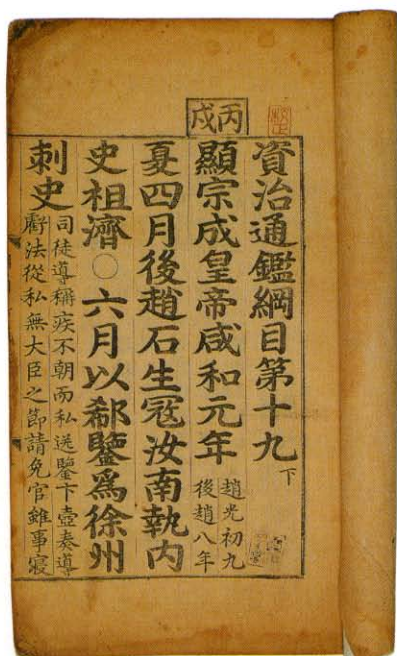 校正
資治通鑑綱目第十九下
丙戌
顯宗成皇帝咸和元年
趙光初九
後趙八年
夏四月後趙石生寇汝南執內
史祖濟○六月以郗鑒爲徐州
刺史
司徒導稱疾不朝而私送鑒卞壼奏導
虧法從私無大臣之節請免官雖事寢